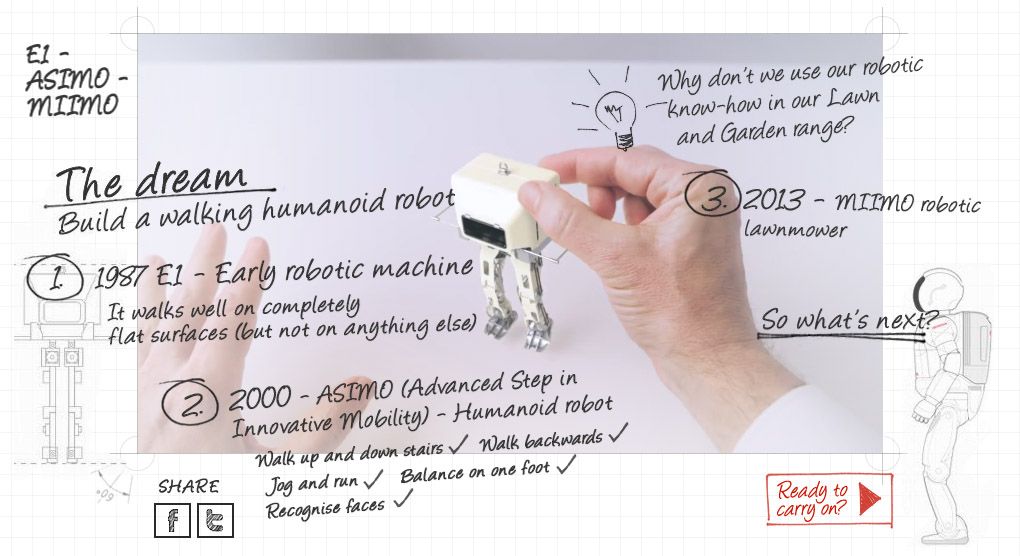 E1 -
ASIMO -
MIIMO
Why don't we use our robotic
know-how in our Lawn
and Garden range?
The dream
Build a walking humanoid robot
1. 1987 E1 - Early robotic machine
It walks well on completely
flat surfaces (but not on anything else)
2. 2000 - ASIMO (Advanced Step in
Innovative Mobility) - Humanoid robot
Walk up and down stairs ✓ Walk backwards ✓
Jog and run ✓ Balance on one foot ✓
Recognise faces ✓
3. 2013 - MIIMO robotic
lawnmower
So what's next?
SHARE
f t
Ready to
carry on?